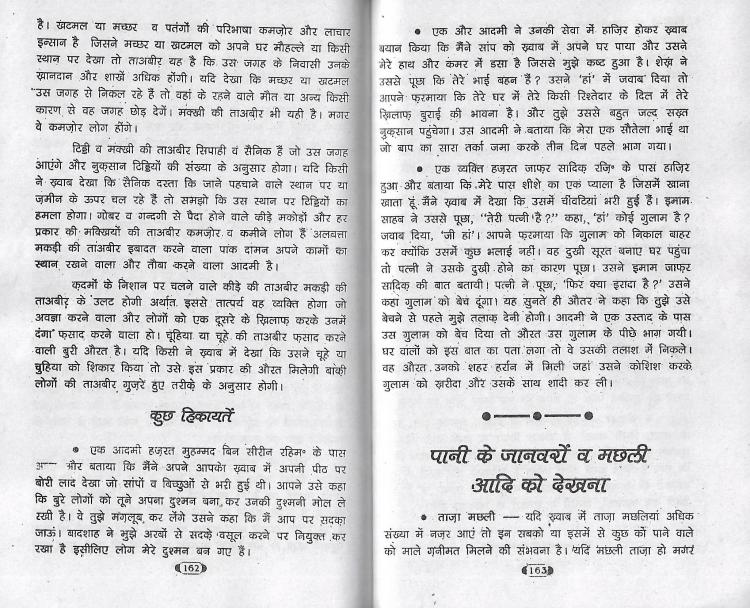 है। खटमल या मच्छर व पतंगों की परिभाषा कमज़ोर और लाचार
इन्सान है जिसने मच्छर या खटमल को अपने घर मौहल्ले या किसी
स्थान पर देखा तो ताअबीर यह है कि उस जगह के निवासी उनके
ख़ानदान और शाखें अधिक होंगी। यदि देखा कि मच्छर या खटमल
उस जगह से निकल रहे हैं तो वहां के रहने वाले मौत या अन्य किसी
कारण से वह जगह छोड़ देगें। मक्खी की ताअबीर भी यही है। मगर
वे कमज़ोर लोग होंगे।
टिड्डी व मक्खी की ताअबीर सिपाही व सैनिक हैं जो उस जगह
आएंगे और नुक़सान टिड्डियों की संख्या के अनुसार होगा। यदि किसी
ने ख़्वाब देखा कि सैनिक दस्ता कि जाने पहचाने वाले स्थान पर या
ज़मीन के ऊपर चल रहे हैं तो समझो कि उस स्थान पर टिड्डियों का
हमला होगा। गोबर व गन्दगी से पैदा होने वाले कीड़े मकोड़ों और हर
प्रकार की मक्खियों की ताअबीर कमज़ोर व कमीने लोग हैं अलबत्ता
मकड़ी की ताअबीर इबादत करने वाला पाक दामन अपने कामों का
स्थान रखने वाला और तौबा करने वाला आदमी है।
क़दमों के निशान पर चलने वाले कीड़े की ताअबीर मकड़ी की
ताअबीर के उलट होगी अर्थात इससे तात्पर्य वह व्यक्ति होगा जो
अवज्ञा करने वाला और लोगों को एक दूसरे के ख़िलाफ़ करके उनमें
दंगा फ़साद करने वाला हो। चूहिया या चूहे की ताअबीर फ़साद करने
वाली बुरी औरत है। यदि किसी ने ख़्वाब में देखा कि उसने चूहे या
चुहिया को शिकार किया तो उसे इस प्रकार की औरत मिलेगी बाक़ी
लोगों की ताअबीर गुज़रे हुए तरीक़े के अनुसार होगी।
कुछ हिकायतें
● एक आदमी हज़रत मुहम्मद बिन सीरीन रहिम॰ के पास
और बताया कि मैंने अपने आपको ख़्वाब में अपनी पीठ पर
बोरी लाद देखा जो सांपों व बिच्छुओं से भरी हुई थी। आपने उसे कहा
कि बुरे लोगों को तूने अपना दुश्मन बना कर उनकी दुश्मनी मोल ले
रखी है। वे तुझे मंग़लूब कर लेंगे उसने कहा कि मैं आप पर सदक़ा
जाऊं। बादशाह ने मुझे अरबों से सदक़े वसूल करने पर नियुक्त कर
रखा है इसीलिए लोग मेरे दुश्मन बन गए हैं।
162
● एक और आदमी ने उनकी सेवा में हाज़िर होकर ख़्वाब
बयान किया कि मैंने सांप को ख़्वाब में अपने घर पाया और उसने
मेरे हाथ और कमर में डसा है जिससे मुझे कष्ट हुआ है। शेख़ ने
उससे पूछा कि तेरे भाई बहन हैं? उसने 'हां' में जवाब दिया तो
आपने फ़रमाया कि तेरे घर में तेरे किसी रिश्तेदार के दिल में तेरे
ख़िलाफ़ बुराई की भावना है। और तुझे उससे बहुत जल्द सख़्त
नुक़सान पहुंचेगा। उस आदमी ने बताया कि मेरा एक सौतेला भाई था
जो बाप का सारा तर्का जमा करके तीन दिन पहले भाग गया।
● एक व्यक्ति हज़रत जाफ़र सादिक़ रज़ि॰ के पास हाज़िर
हुआ और बताया कि मेरे पास शीशे का एक प्याला है जिसमें खाना
खाता हूं। मैंने ख़्वाब में देखा कि उसमें चींवटियां भरी हुई हैं। इमाम
साहब ने उससे पूछा, "तेरी पत्नी है?" कहा, 'हां' कोई गुलाम है?
जवाब दिया, 'जी हां'। आपने फ़रमाया कि गुलाम को निकाल बाहर
कर क्योंकि उसमें कुछ भलाई नहीं। वह दुखी सूरत बनाए घर पहुंचा
तो पत्नी ने उसके दुखी होने का कारण पूछा। उसने इमाम जाफ़र
सादिक़ की बात बतायी। पत्नी ने पूछा, 'फिर क्या इरादा है?' उसने
कहा गुलाम को बेच दूंगा। यह सुनते ही औतर ने कहा कि तुझे उसे
बेचने से पहले मुझे तलाक़ देनी होगी। आदमी ने एक उस्ताद के पास
उस गुलाम को बेच दिया तो औरत उस गुलाम के पीछे भाग गयी।
घर वालों को इस बात का पता लगा तो वे उसकी तलाश में निकले।
वह औरत उनको शहर हर्रान में मिली जहां उसने कोशिश करके
गुलाम को ख़रीदा और उसके साथ शादी कर ली।
पानी के जानवरों व मछली
आदि को देखना
● ताज़ा मछली — यदि ख़्वाब में ताज़ा मछलियां अधिक
संख्या में नज़र आएं तो इन सबको या इसमें से कुछ को पाने वाले
को माले ग़नीमत मिलने की संभवना है। यदि मछली ताज़ा हो मगर
163